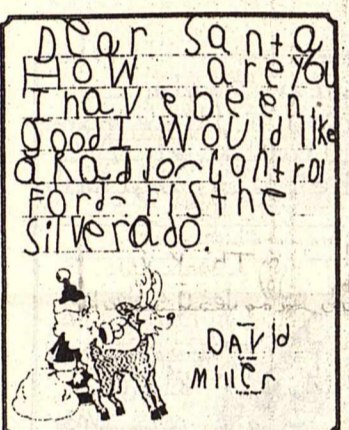 Dear Santa
How are You
I have been.
good I Would like
a Radio-Control
Ford- F15 the
Silverado.
DAVId
MIller